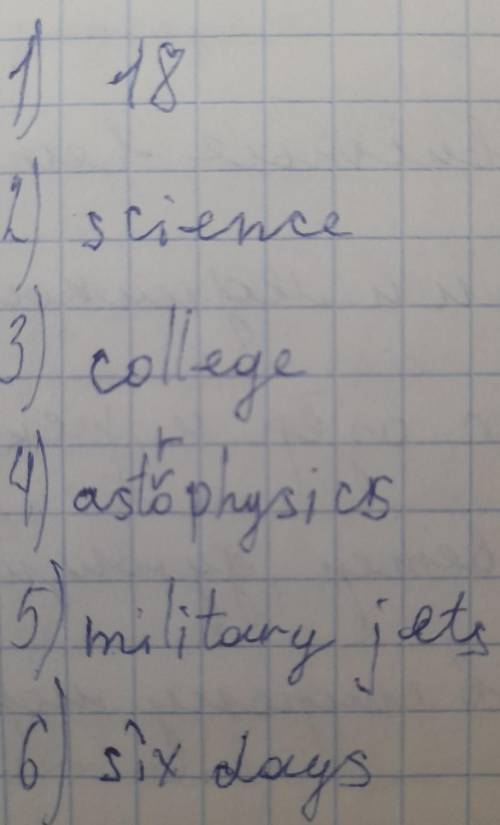 1) 18
2) science
3) college
4) astrophysics
5) military jets
6) six days